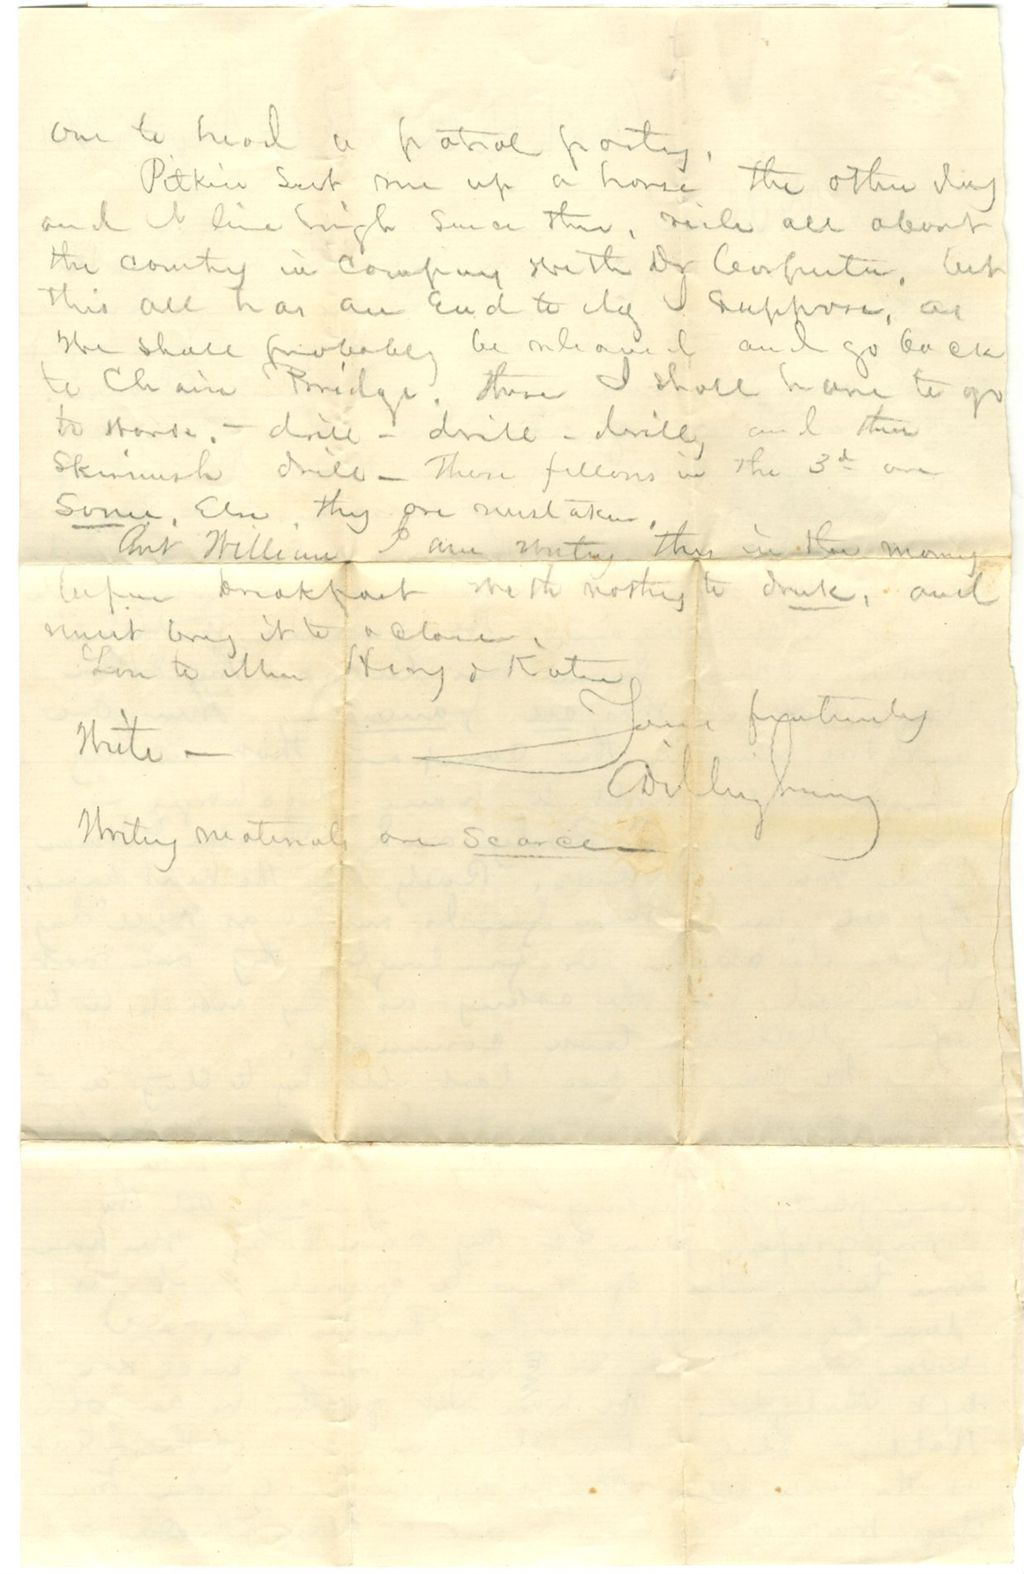 one to head a patrol party.
Pitkin sent me up a horse the other day
and I live high since then, ride all about
the country in company with Dr Carpenter. but
this all has an End to day I suppose, as
we shall probably be relieved and go back
to Chain Bridge. there I shall have to go
to work. - drill - drill - drill, and then
skirmish drill - These fellows in the 3d are
Some, Else they are mistaken.
But William, I am writing this in the morning
before breakfast with nothing to drink, and
must bring it to a close.
Love to Henry & Katie
Yours fraternally
Write - Dillingham
Writing materials are scarce